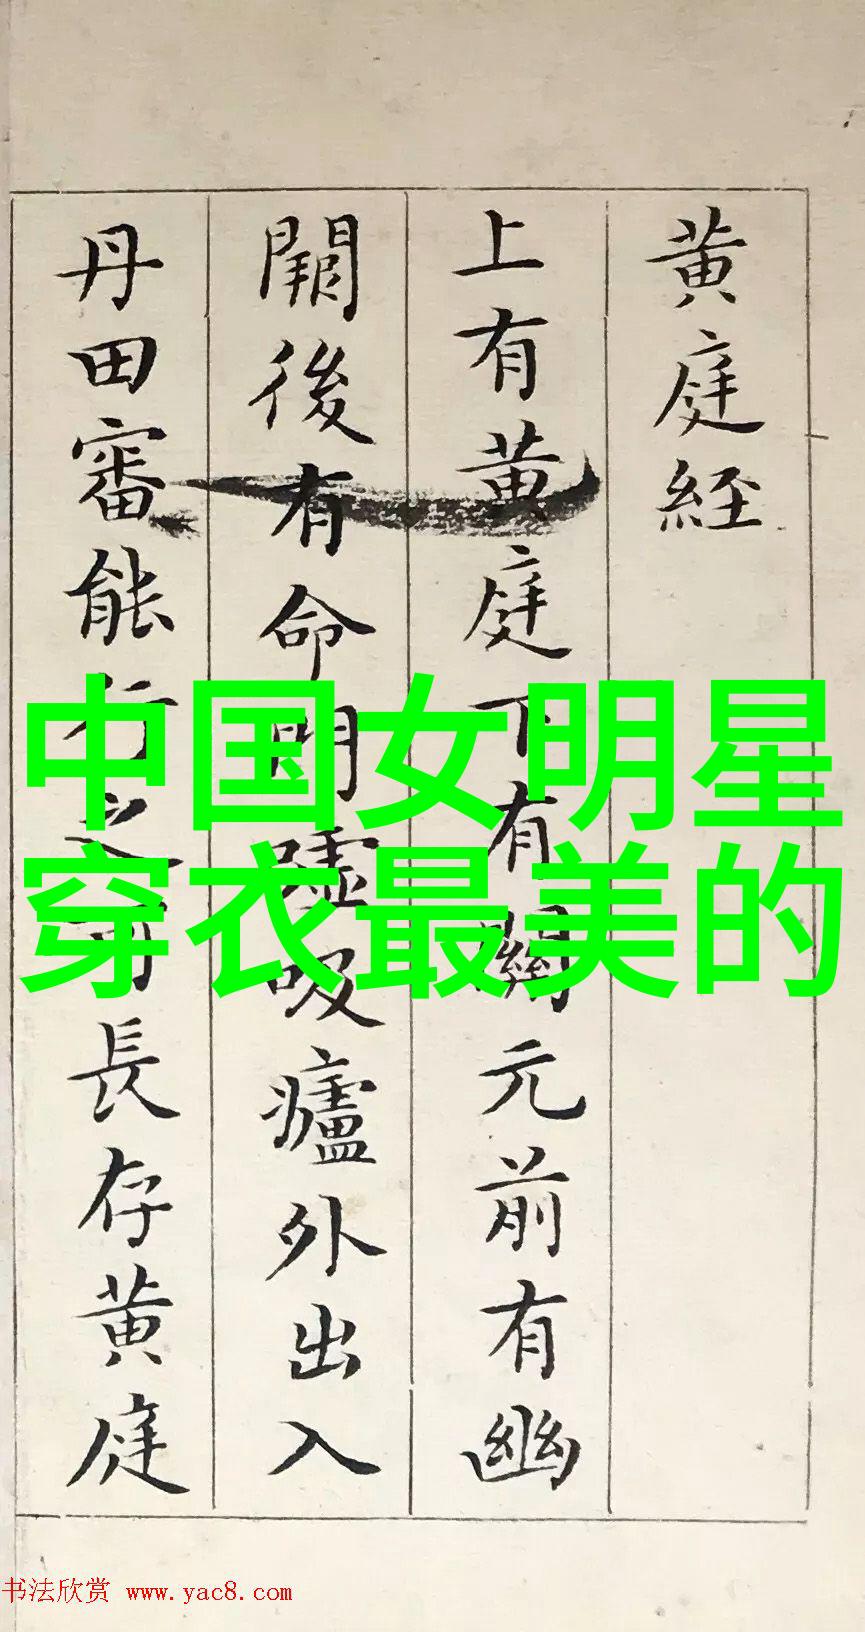 黄庭經
上有黄庭下有關元前有幽
闕後有命門嘘吸廬外出入
丹田審能行之可長存黄庭
中国女明星
穿衣最美的
书法欣赏 www.yac8.com